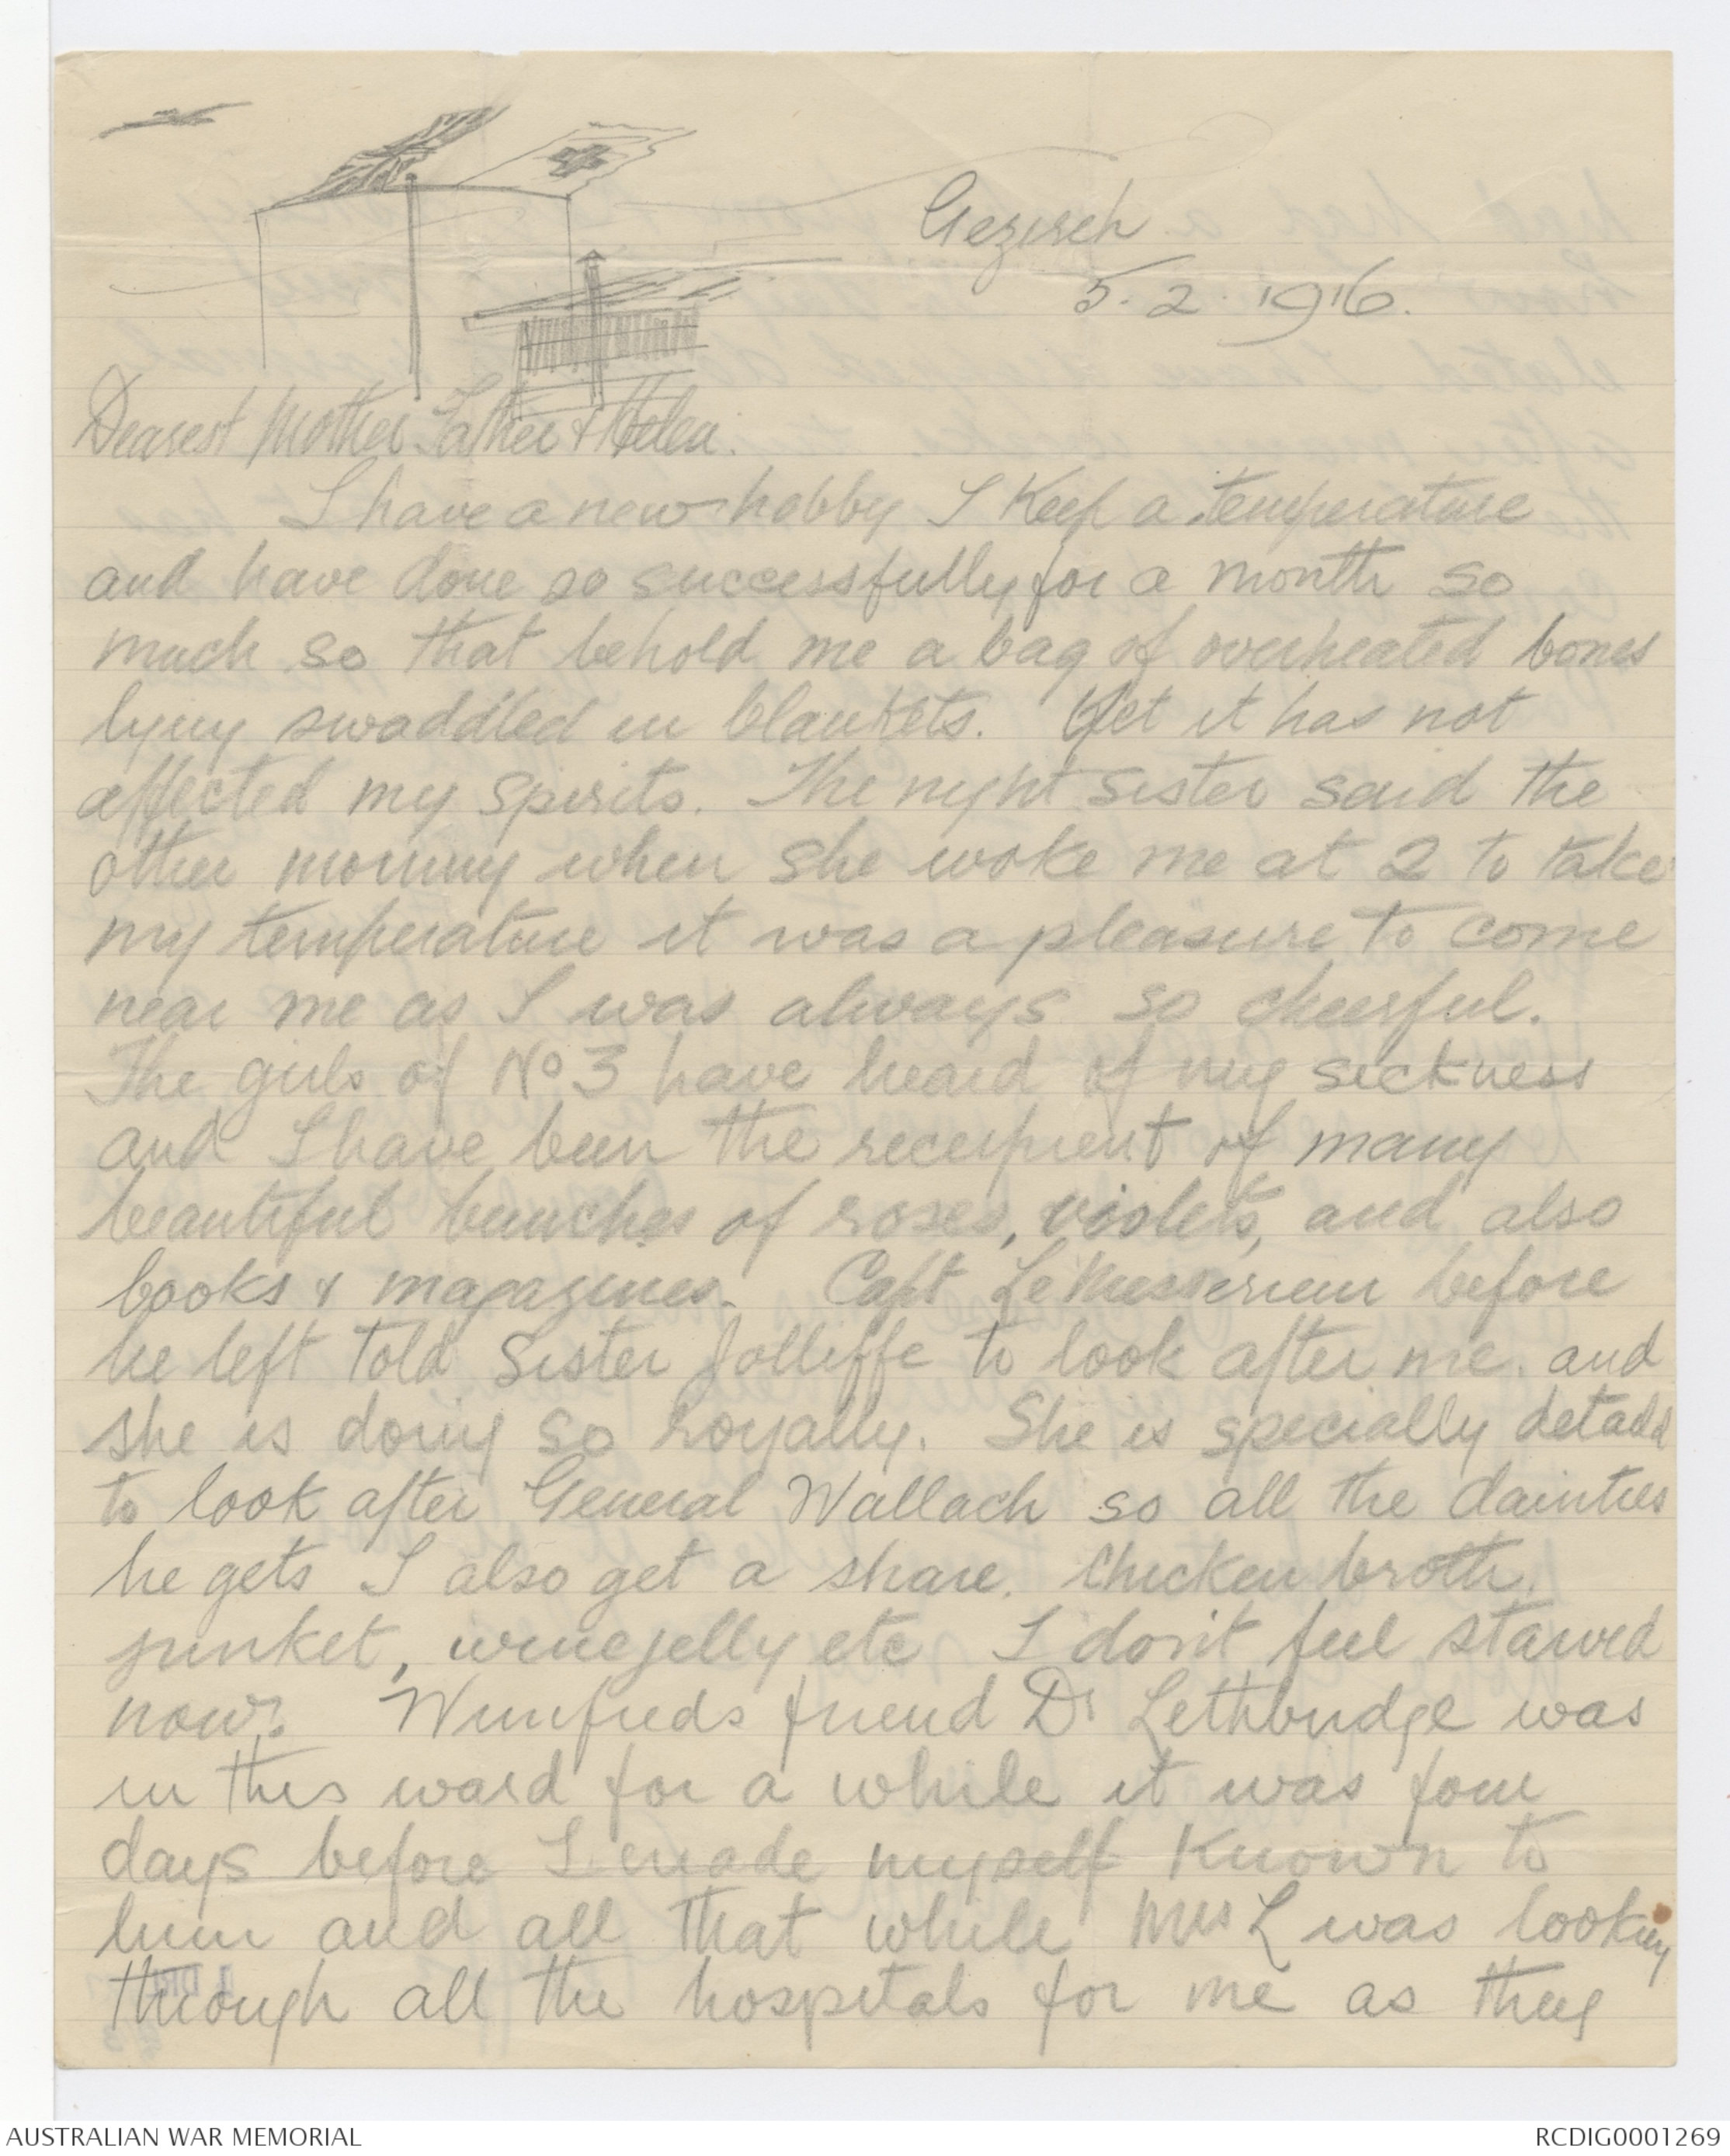 Gezireh
5. 2. 1916.
Dearest Mother Father & Helen.
I have a new hobby I keep a temperature
and have done so successfully for a month so
much so that behold me a bag of overheated bones
lying swaddled in blankets. Yet it has not
affected my spirits. The night sister said the
other morning when she woke me at 2 to take
my temperature it was a pleasure to come
near me as I was always so cheerful.
The girls of No 3 have heard of my sickness
and I have been the recepient of many
beautiful bunches of roses, violets, and also
books & magazines. Capt Le Messerieur before
he left told Sister Jolliffe to look after me. and
she is doing so royally. She is specially detailed
to look after General Wallach so all the dainties
he gets I also get a share. Chicken broth,
junket, winejelly etc I don't feel starved
now. Winifreds friend Dr Lethbridge was
in this ward for a while it was four
days before I made myself known to
him and all that while Mrs L was looking
through all the hospitals for me as they
AUSTRALIAN WAR MEMORIAL
RCDIG0001269